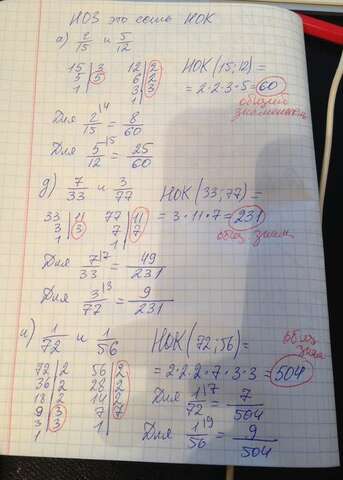 НОЗ это есть НОК
а) 2/15 и 5/12
15|3 12|2 НОК(15;12)=
5|5 6|2 =2·2·3·5=60
1| 3|3 общий
1| знаменатель
Для 2/15 \4 = 8/60
Для 5/12 \5 = 25/60
д) 7/33 и 3/77 НОК(33,77)=
33|11 77|11 =3·11·7=231
3|3 7|7 общ знам.
1| 1|
Для 7/33 \7 = 49/231
Для 3/77 \3 = 9/231
и) 1/72 и 1/56 НОК(72;56)= общ знам
72|2 56|2 =2·2·2·7·3·3=504
36|2 28|2 Для 1/72 \7 = 7/504
18|2 14|2
9|3 7|7 Для 1/56 \9 = 9/504
3|3 1|
1|